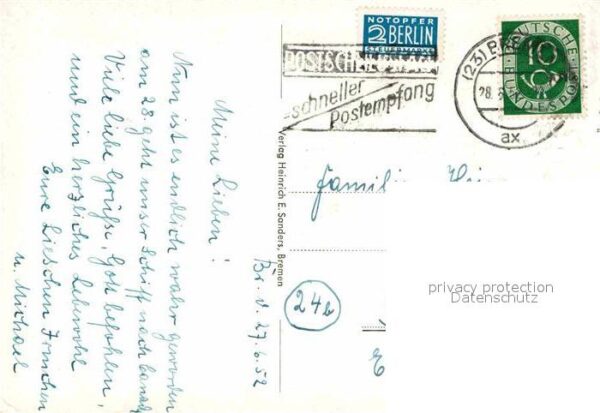 Br. d. 27.6.52
Meine Lieben!
Nun ist es endlich wahr geworden
am 28. geht unser Schiff nach Canada
Viele liebe Grüße, Gott befohlen,
und ein herzliches Lebewohl
Eure Lieschen
u. Michael
NOTOPFER
2 BERLIN
STEUERMARKE
schneller
Postempfang
(23) BRE
28.
ax
DEUTSCHE
10
BUNDESPOST
Verlag Heinrich E. Sanders, Bremen
Famili
24b
privacy protection
Datenschutz